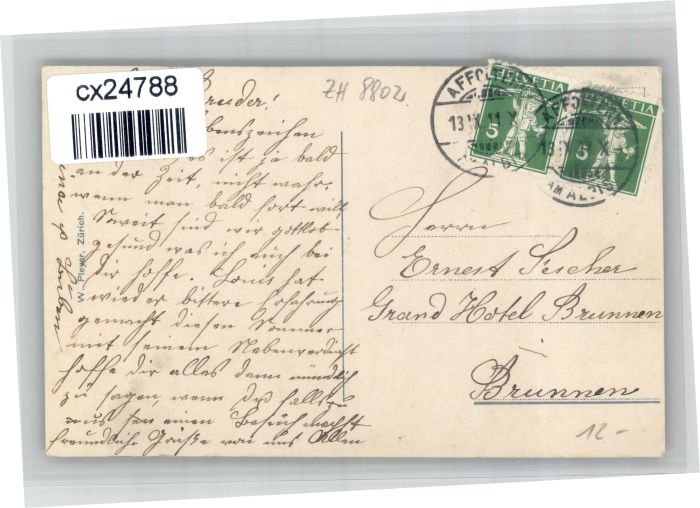 cx24788
Bruder!
Lebenszeichen
es ist ja bald
an der Zeit, nicht wahr,
wenn man bald fort will
Soweit sind wir gottlob
gesund was ich auch bei
dir hoffe. Louis hat
wieder bittere Erfahrung
gemacht diesen Sommer
mit einem Nebenverdienst
hoffe dir alles dann mündlich
zu sagen, wenn Du
uns einen Besuch machst
freundliche Grüße von uns Allen
W. Pleyer, Zürich.
ZH 8802
AFFOLTERN
HELVETIA
5
AFFOLTERN
HELVETIA
5
Herrn
Ernest Fischer
Grand Hotel Brunnen
Brunnen
12-